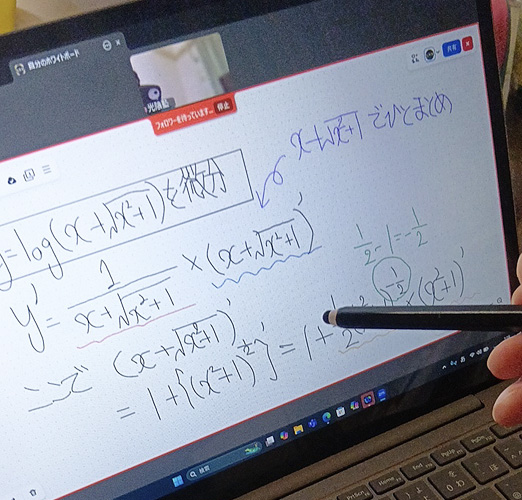 自分のホワイトボード
フォロワーを待っています...
停止
共有
x+√x²+1 でひとまとめ
y=log(x+√x²+1)を微分
y'= 1/(x+√x²+1) ×(x+√x²+1)'
1/2-1=-1/2
ここで (x+√x²+1)'
=1+{(x²+1)^(1/2)}'=1+ 1/2 -1/2 ×(x²+1)'
検索